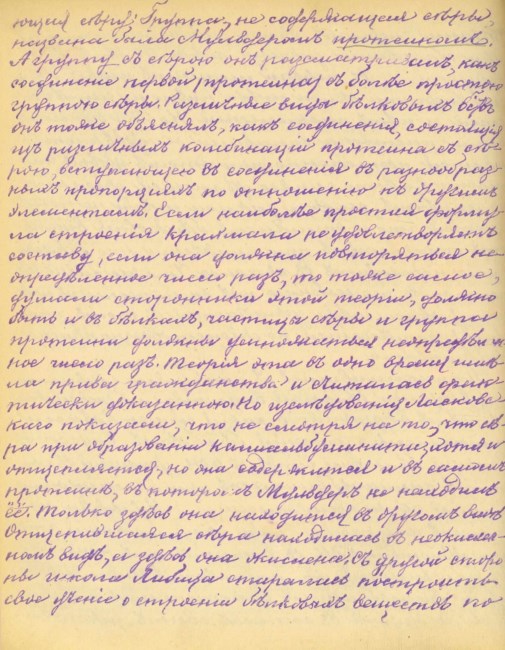 ющия сѣру. Группа, не содержащая сѣры,
названа была Мульдеромъ протеиномъ.
А группу съ сѣрою онъ разсматривалъ, какъ
соединение первой (протеина) съ болѣе простою
группою сѣры. Различные виды бѣлковыхъ вещ.
онъ тоже объяснялъ, какъ соединенія, состоящія
изъ различныхъ комбинацій протеина съ сѣ-
рою, вступающею въ соединенія въ разнообраз-
ныхъ пропорціяхъ по отношенію къ другимъ
элементамъ. Если наиболѣе простая форму-
ла строенія крахмала не удовлетворяетъ
составу, если она должна повторяться не-
опредѣленное число разъ, то тоже самое,
думали сторонники этой теоріи, должно
быть и въ бѣлкахъ, частица сѣры и группа
протеина должны умножаться неопредѣлен-
ное число разъ. Теорія эта въ одно время имѣ-
ла права гражданства и считалась фак-
тически доказанною. Но изслѣдованія Ласковс-
каго показали, что не смотря на то, что сѣ-
ра при образованіи и
отщепляется, но она содержится и въ самомъ
протеинѣ, въ которомъ Мульдеръ не находилъ
её. Только здѣсь она находится въ другомъ видѣ.
Отщепившаяся сѣра находилась въ неокислен-
номъ видѣ, а здѣсь она окислена. Съ другой сторо-
ны школа Либиха старалась построить
свое ученіе о строеніи бѣлковыхъ веществъ по